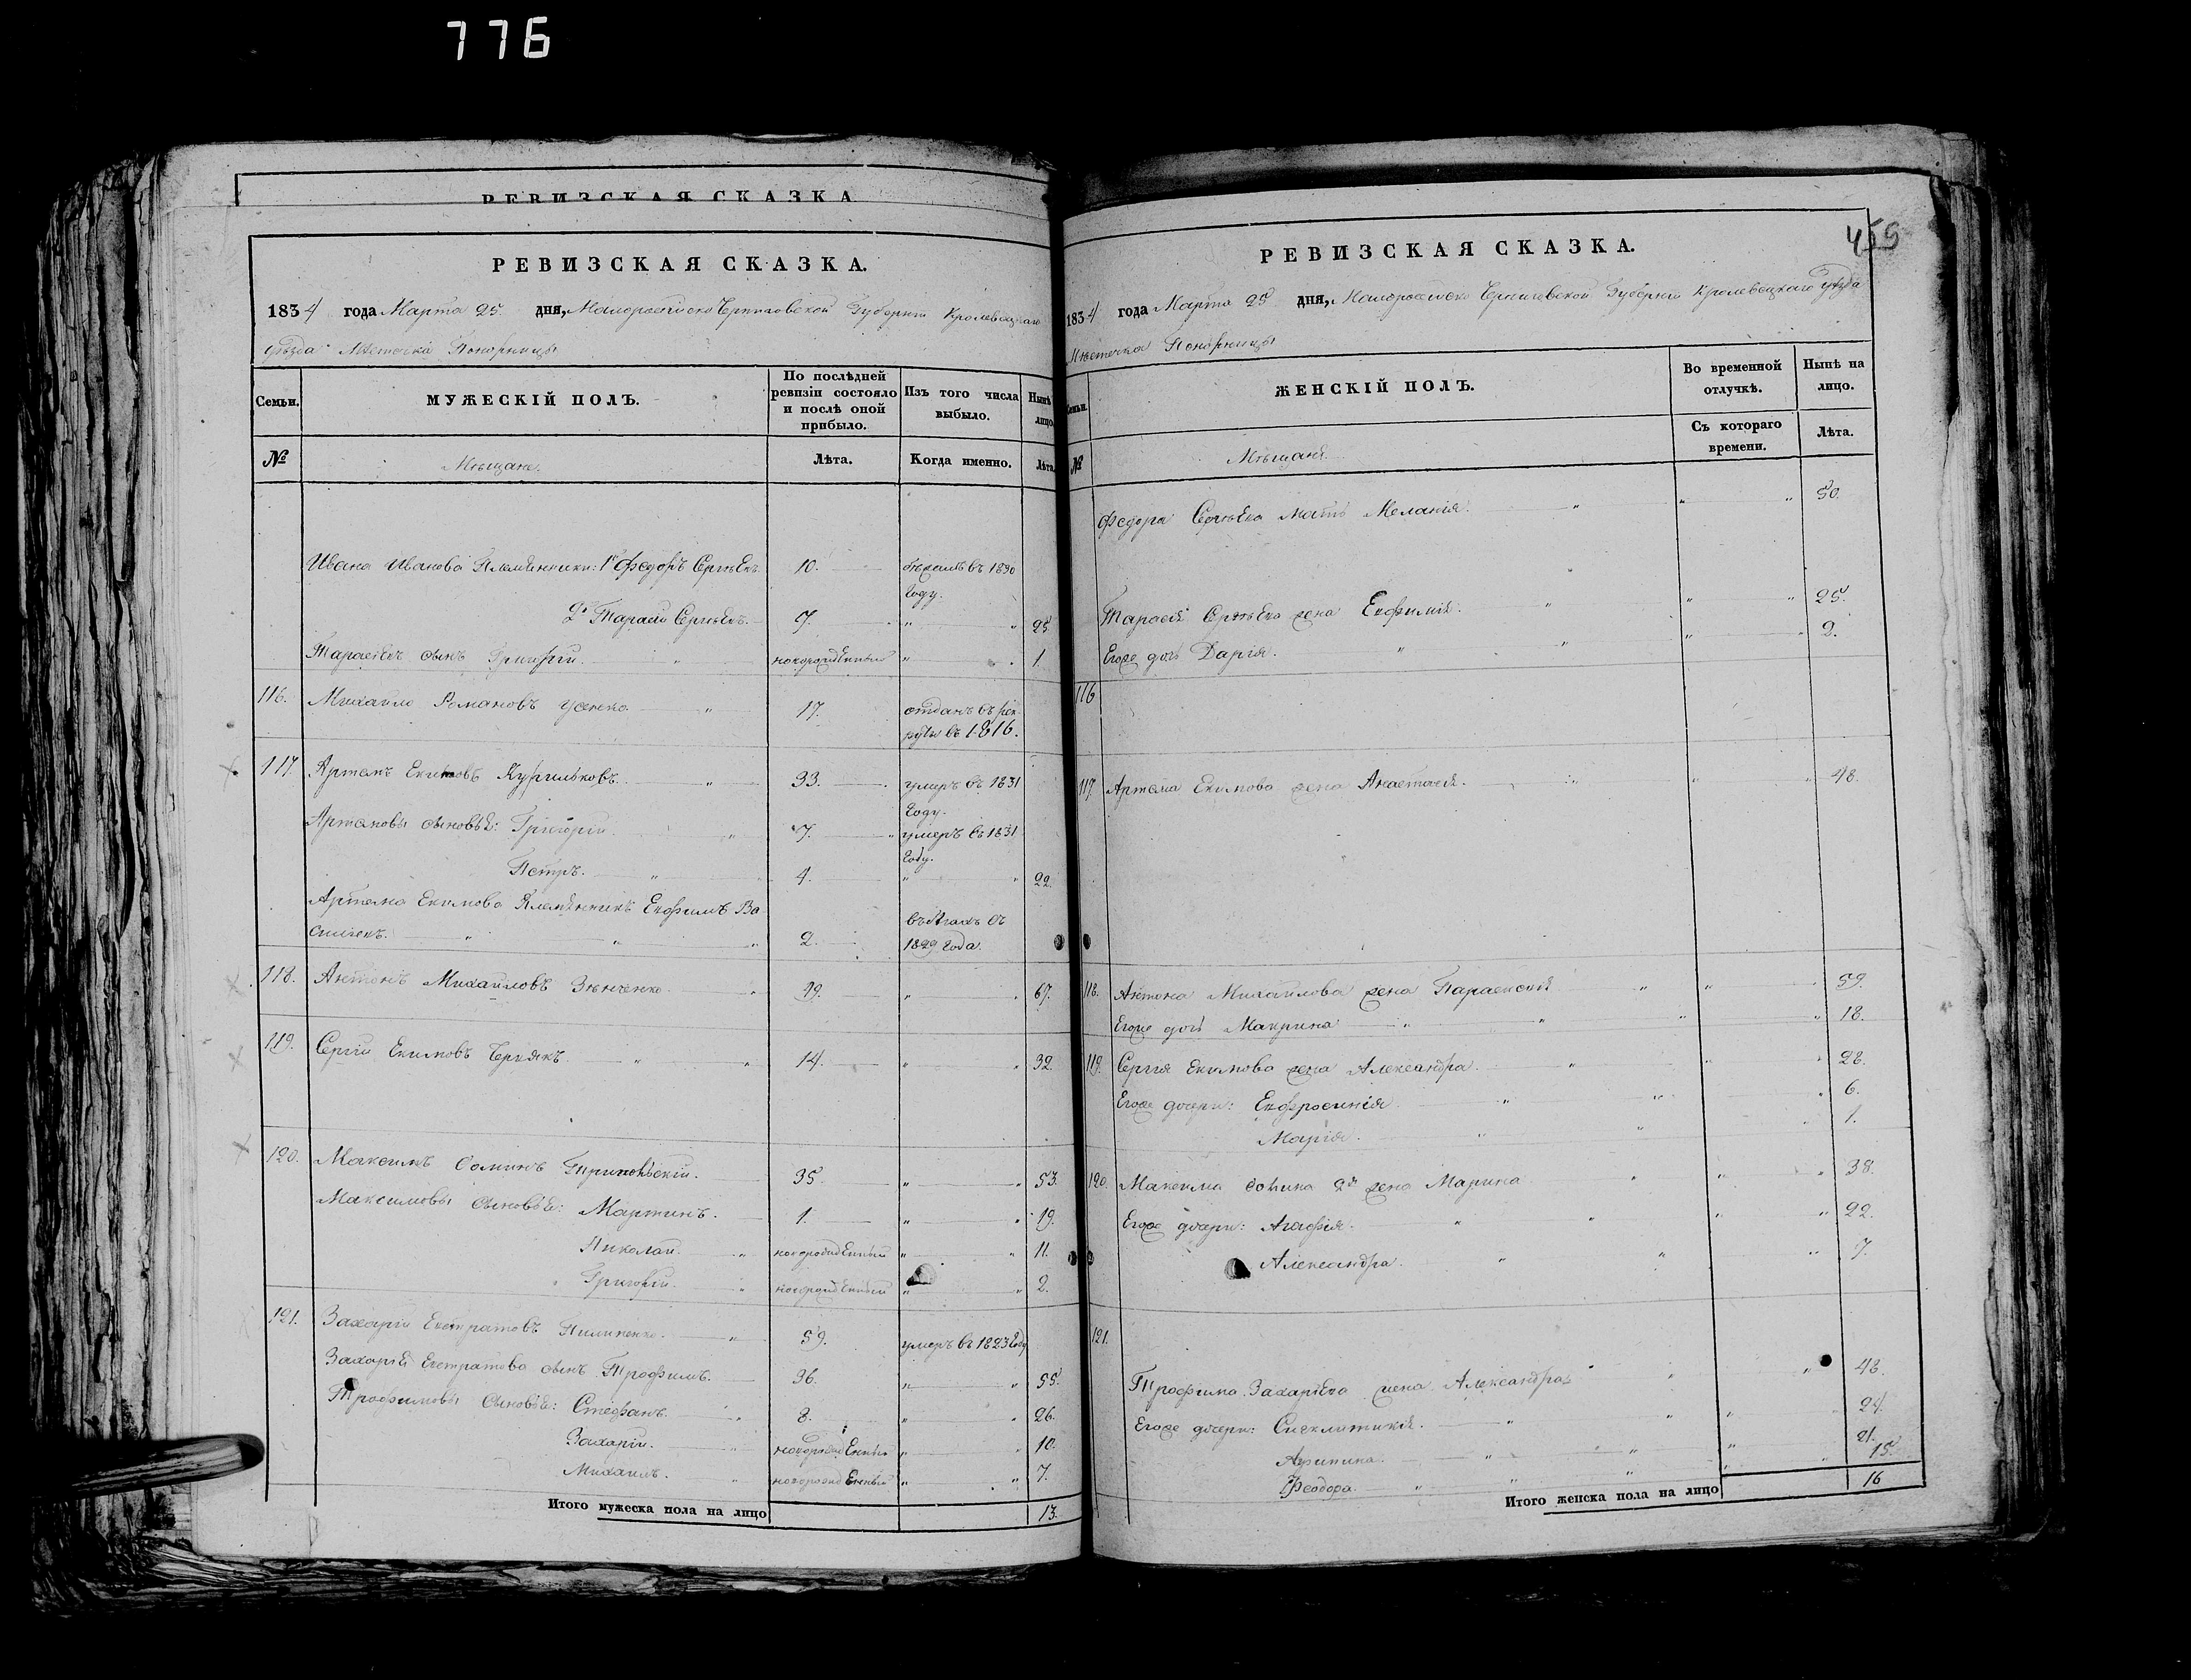 776
РЕВИЗСКАЯ СКАЗКА
РЕВИЗСКАЯ СКАЗКА.
1834 года Марта 25 дня, Малороссійско Черниговской Губерніи Кролевецкаго
уѣзда Мѣстечка Понорницы
Семьи.
МУЖЕСКІЙ ПОЛЪ.
По послѣдней ревизіи состояло и послѣ оной прибыло.
Изъ того числа выбыло.
Нынѣ лицо
№
Мѣщане.
Лѣта.
Когда именно.
Лѣта
Ивана Иванова Племянники: 1й Федоръ Сергѣевъ 10. бѣжалъ въ 1830
Году.
2й Тарасій Сергѣевъ. 7. " " 25
Тарасіевъ сынъ Григорій. " новорожденный " " 1.
116. Михайло Романовъ Усенко " 17. отданъ въ рек-
руты въ 1816.
117 Артемъ Екимовъ Курильковъ. " 33. умеръ въ 1831
Году.
Артемовы сыновья: Григорій " 7. умеръ въ 1831
Году.
Петръ. " 4. " " 22.
Артема Екимова Племянникъ Евфимъ Ва
силіевъ. " " " 2. въ бѣгахъ съ
1829 Года.
118. Антонъ Михайловъ Зѣнченко " 49. " " 67.
119. Сергій Екимовъ Чернякъ. " " 14. " " 32.
120. Максимъ Фоминъ 35. " " 53.
Максимовы сыновья: Мартинъ. 1. " " 19.
Николай. " новорожденный " " 11.
Григорій. " новорожденный " " 2.
121. Захарій Евстратовъ Пилипенко. " 59. умеръ въ 1823 Году
Захарія Евстратова сынъ Трофимъ. 36. " " 55.
Трофимовы Сыновья: Стефанъ. " 8. " " 26.
Захарій. " новорожденный " " 10.
Михаилъ. " новорожденный " " 7.
Итого мужеска пола на лицо 13.
459
РЕВИЗСКАЯ СКАЗКА.
1834 года Марта 25 дня, Малороссійско Черниговской Губерніи Кролевецкаго уѣзда
Мѣстечка Понорницы
Семьи.
ЖЕНСКІЙ ПОЛЪ.
Во временной отлучкѣ.
Нынѣ на лицо.
Съ котораго времени.
Лѣта.
№
Мѣщане.
Федора Сергѣева мать Меланія. " " " 50.
Тарасія Сергѣева жена Евфимія. " " " 25.
Егоже дочь Дарія. " " " " 2.
116
117. Артема Екимова жена Анастасія. " " " 48.
118. Антона Михайлова жена Параскевія " " " 59.
Егоже дочь Макрина " " " " 18.
119. Сергія Екимова жена Александра. " " " 28.
Егоже дочери: Евфросинія " " " 6.
Марія. " " " 1.
120. Максима Фомина 2я жена Марина " " " 38.
Егоже дочери: Агафія. " " " " 22.
Александра. " " " 7.
121.
Трофима Захаріева жена Александра " " 43.
Егоже дочери: Синклитикія. " " " 24.
Агрипина. " " " " 21.
Феодора. " " " " " 15.
Итого женска пола на лицо 16